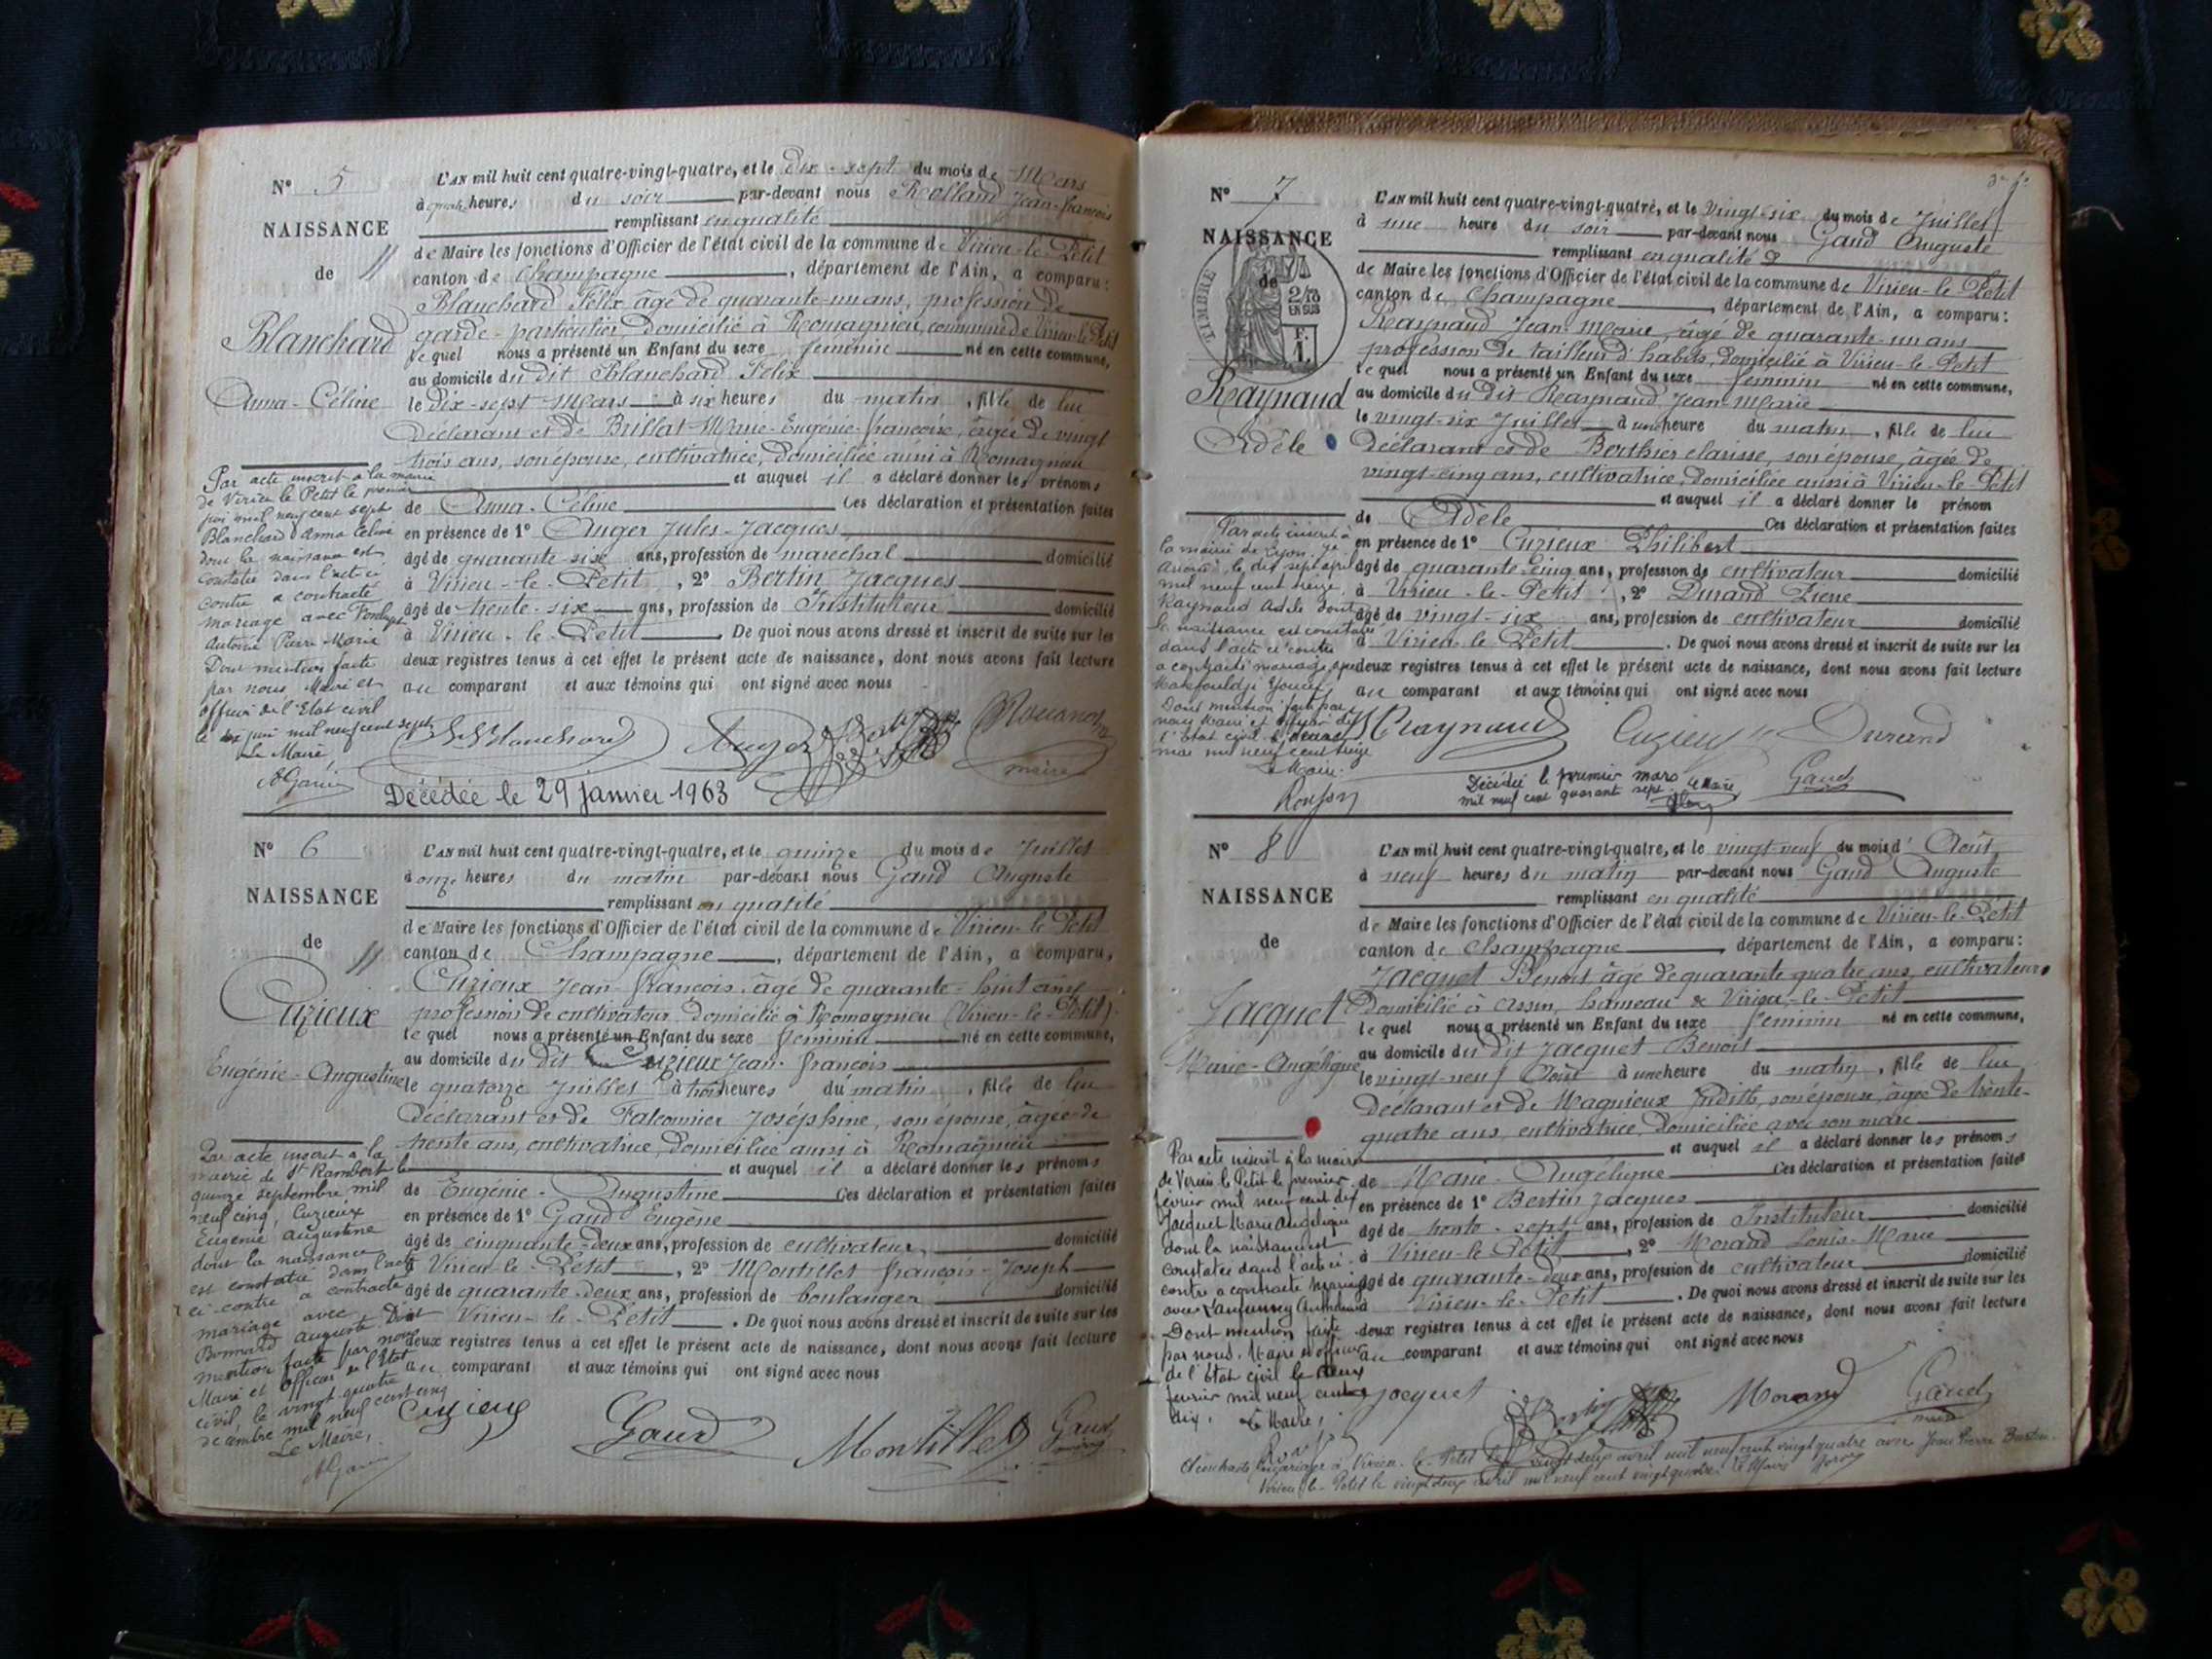 N° 5
NAISSANCE
de
Blanchard
Anna-Céline
L'AN mil huit cent quatre-vingt-quatre, et le dix-sept du mois de Mars
à quatre heures du soir par-devant nous Rolland Jean-françois
remplissant en qualité
de Maire les fonctions d'Officier de l'état civil de la commune de Virieu-le-Petit
canton de Champagne, département de l'Ain, a comparu:
Blanchard Félix âgé de quarante-un ans, profession de
garde-particulier domicilié à Romagnieu, commune de Virieu-le-Petit
lequel nous a présenté un Enfant du sexe féminin né en cette commune,
au domicile du dit Blanchard Félix
le dix-sept Mars à six heures du matin, fille de lui
Déclarant et de Brillat Marie-Eugénie-françoise, âgée de vingt
trois ans, son épouse, cultivatrice, domiciliée aussi à Romagnieu
et auquel il a déclaré donner les prénoms
de Anna-Céline Ces déclaration et présentation faites
en présence de 1° Anger Jules-Jacques
âgé de quarante-six ans, profession de maréchal domicilié
à Virieu-le-Petit, 2° Bertin Jacques
âgé de trente-six ans, profession de Instituteur domicilié
à Virieu-le-Petit. De quoi nous avons dressé et inscrit de suite sur les
deux registres tenus à cet effet le présent acte de naissance, dont nous avons fait lecture
au comparant et aux témoins qui ont signé avec nous
Par acte inscrit à la mairie
de Virieu le Petit le premier
juin mil neuf cent sept
Blanchard Anna Céline
dont la naissance est
constatée dans l'acte ci
contre a contracté
mariage avec
Antoine Pierre Marie
Dont mention faite
par nous, Maire et
officier de l'Etat civil
le dix juin mil neuf cent sept
Le Maire
Décédée le 29 janvier 1963
N° 6
NAISSANCE
de
Cuzieux
Eugénie-Augustine
L'AN mil huit cent quatre-vingt-quatre, et le quinze du mois de Juillet
à onze heures du matin par-devant nous Gaud Auguste
remplissant en qualité
de Maire les fonctions d'Officier de l'état civil de la commune de Virieu-le-Petit
canton de Champagne, département de l'Ain, a comparu,
Cuzieux Jean-françois âgé de quarante-huit ans
profession de cultivateur domicilié à Romagnieu (Virieu-le-Petit)
lequel nous a présenté un Enfant du sexe féminin né en cette commune,
au domicile du dit Cuzieux Jean-françois
le quatorze Juillet à trois heures du matin, fille de lui
Déclarant et de Falconnier Joséphine, son épouse, âgée de
trente ans, cultivatrice domiciliée aussi à Romagnieu
et auquel il a déclaré donner les prénoms
de Eugénie-Augustine Ces déclaration et présentation faites
en présence de 1° Gaud Eugène
âgé de cinquante-deux ans, profession de cultivateur domicilié
à Virieu-le-Petit, 2° Montillet françois-Joseph
âgé de quarante-deux ans, profession de boulanger domicilié
à Virieu-le-Petit. De quoi nous avons dressé et inscrit de suite sur les
deux registres tenus à cet effet le présent acte de naissance, dont nous avons fait lecture
au comparant et aux témoins qui ont signé avec nous
Par acte inscrit à la
mairie de St Rambert le
quinze septembre mil
neuf cinq, Cuzieux
Eugénie Augustine
dont la naissance
est constatée dans l'acte
ci-contre a contracté
mariage avec
Bonnard Auguste Dont
mention faite par nous
Maire et Officier de l'Etat
civil, le vingt-quatre
décembre mil neuf cent cinq
Le Maire,
Cuzieux Gaud Montillet Gaud
N° 7
NAISSANCE
de
TIMBRE
2/10 EN SUS
Raynaud
Adèle
L'AN mil huit cent quatre-vingt-quatre, et le vingt-six du mois de Juillet
à une heure du soir par-devant nous Gaud Auguste
remplissant en qualité
de Maire les fonctions d'Officier de l'état civil de la commune de Virieu-le-Petit
canton de Champagne, département de l'Ain, a comparu:
Raynaud Jean-Marie, âgé de quarante-un ans
profession de tailleur d'habits, domicilié à Virieu-le-Petit
lequel nous a présenté un Enfant du sexe féminin né en cette commune,
au domicile du dit Raynaud Jean-Marie
le vingt-six Juillet à une heure du matin, fille de lui
Déclarant et de Berthier clarisse, son épouse, âgée de
vingt-cinq ans, cultivatrice, domiciliée aussi à Virieu-le-Petit
et auquel il a déclaré donner le prénom
de Adèle Ces déclaration et présentation faites
en présence de 1° Cuzieux Philibert
âgé de quarante-cinq ans, profession de cultivateur domicilié
à Virieu-le-Petit, 2° Durand Pierre
âgé de vingt-six ans, profession de cultivateur domicilié
à Virieu-le-Petit. De quoi nous avons dressé et inscrit de suite sur les
deux registres tenus à cet effet le présent acte de naissance, dont nous avons fait lecture
au comparant et aux témoins qui ont signé avec nous
Par acte inscrit à
la mairie de Lyon
le dix sept avril
mil neuf cent seize
Raynaud Adèle dont
la naissance est constatée
dans l'acte ci contre
a contracté mariage avec
Dont mention faite par
nous Maire et officier de
l'Etat civil le
mai mil neuf cent seize
Le Maire
Raynaud Cuzieux Durand
Décédée le premier mars
mil neuf cent quarante sept. Le Maire
Gaud
N° 8
NAISSANCE
de
Jacquet
Marie-Angélique
L'AN mil huit cent quatre-vingt-quatre, et le vingt-neuf du mois d'Août
à neuf heures du matin par-devant nous Gaud Auguste
remplissant en qualité
de Maire les fonctions d'Officier de l'état civil de la commune de Virieu-le-Petit
canton de Champagne, département de l'Ain, a comparu:
Jacquet Benoit âgé de quarante quatre ans, cultivateur
Domicilié à Assin, hameau de Virieu-le-Petit
lequel nous a présenté un Enfant du sexe féminin né en cette commune,
au domicile du dit Jacquet Benoit
le vingt-neuf Août à une heure du matin, fille de lui
Déclarant et de Magnieux Judith, son épouse, âgée de trente-
quatre ans, cultivatrice, domiciliée avec son mari
et auquel il a déclaré donner les prénoms
de Marie-Angélique Ces déclaration et présentation faites
en présence de 1° Bertin Jacques
âgé de trente-sept ans, profession de Instituteur domicilié
à Virieu-le-Petit, 2° Morand Louis-Marie
âgé de quarante-deux ans, profession de cultivateur domicilié
à Virieu-le-Petit. De quoi nous avons dressé et inscrit de suite sur les
deux registres tenus à cet effet le présent acte de naissance, dont nous avons fait lecture
au comparant et aux témoins qui ont signé avec nous
Par acte inscrit à la mairie
de Virieu le Petit le premier
février mil neuf cent dix
Jacquet Marie Angélique
dont la naissance est
constatée dans l'acte ci-
contre a contracté mariage
avec
Dont mention faite
par nous, Maire et officier
de l'Etat civil le deux
février mil neuf cent
dix. Le Maire,
Jacquet Morand Gaud
maire
mariage à Virieu-le-Petit le vingt deux avril mil neuf cent vingt quatre avec Jean Pierre
Virieu-le-Petit le vingt deux avril mil neuf cent vingt quatre. Le Maire